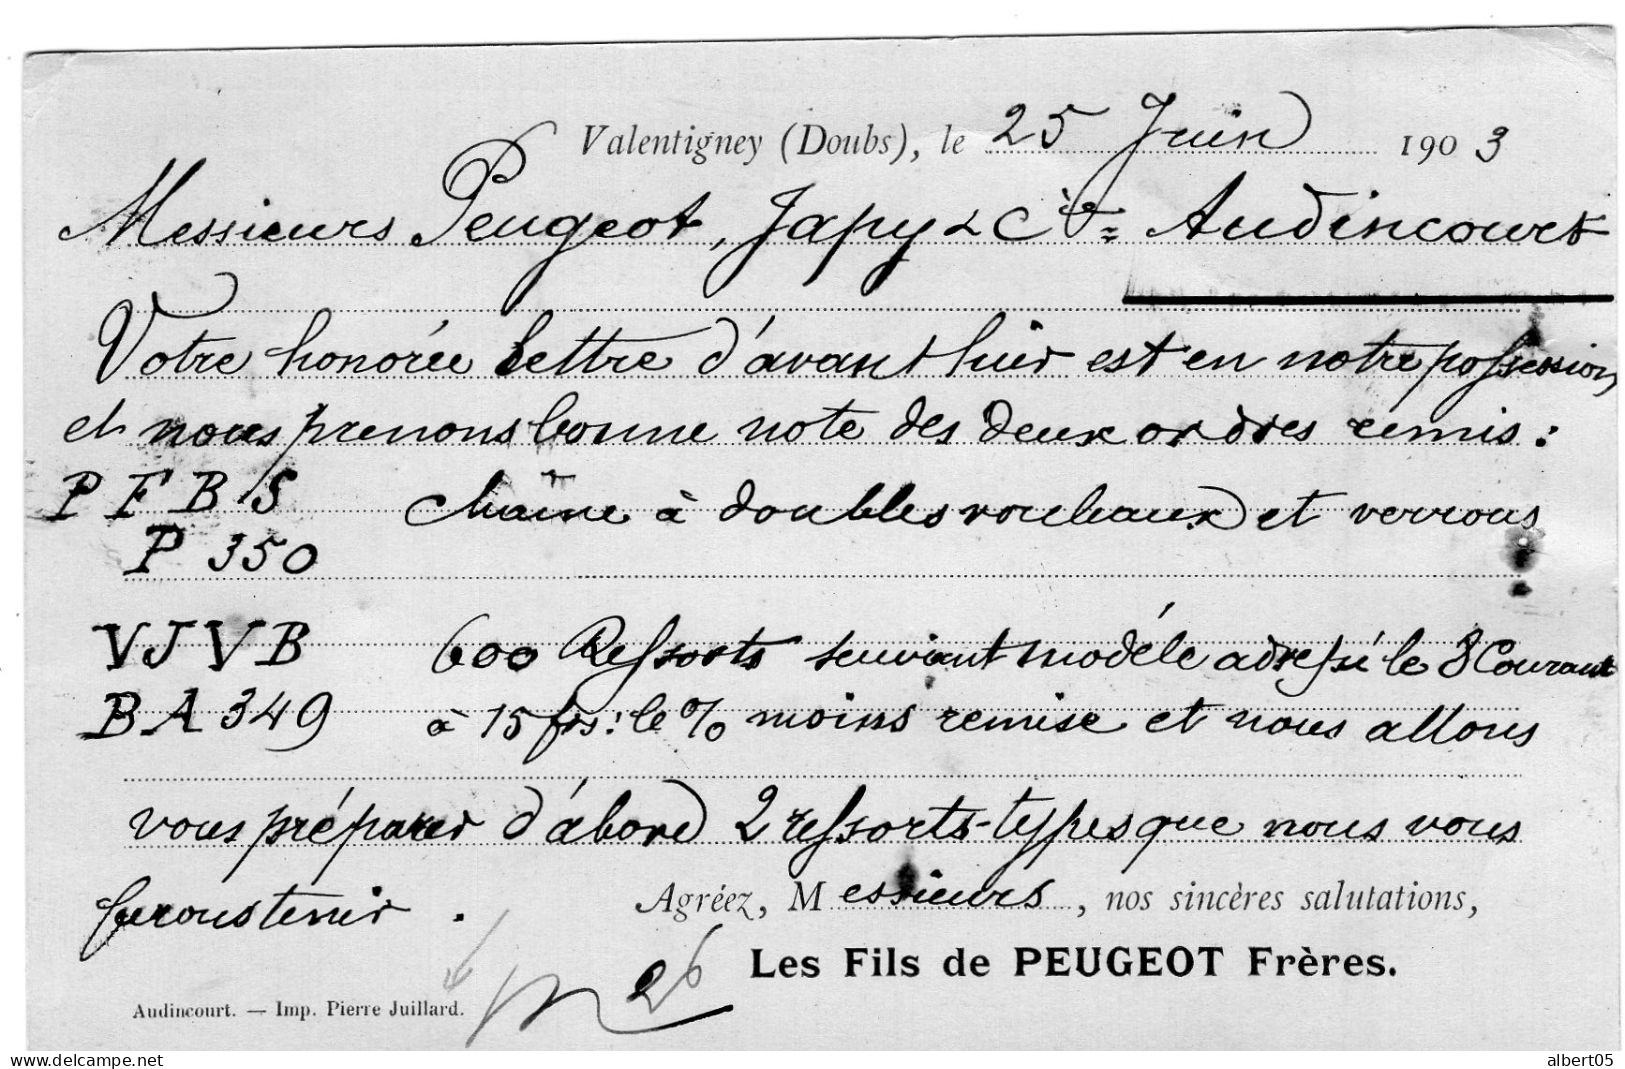 Valentigney (Doubs), le 25 Juin 1903
Messieurs Peugeot, Japy & Cie = Audincourt
Votre honorée lettre d'avant hier est en notre possession,
et nous prenons bonne note des deux ordres remis :
P F B S chaîne à doubles rouleaux et verrous
P 350
V J V B 600 Ressorts suivant modéle adressé le 8 Courant
B A 349 à 15 frs: le % moins remise et nous allons
vous préparer d'abord 2 ressorts-types que nous vous
ferons tenir.
Agréez, Messieurs, nos sincères salutations,
26 Les Fils de PEUGEOT Frères.
Audincourt. — Imp. Pierre Juillard.
www.delcampe.net albert05